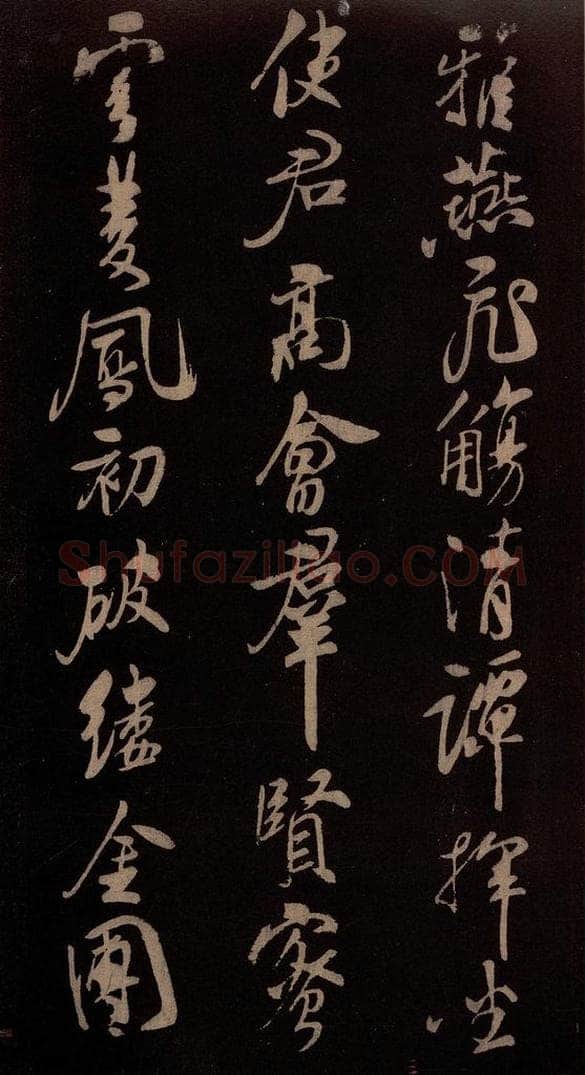 雅燕飛觴清譚揮坐
使君高會羣賢密
雲雙鳳初破縷金團
Shufaziliao.COM